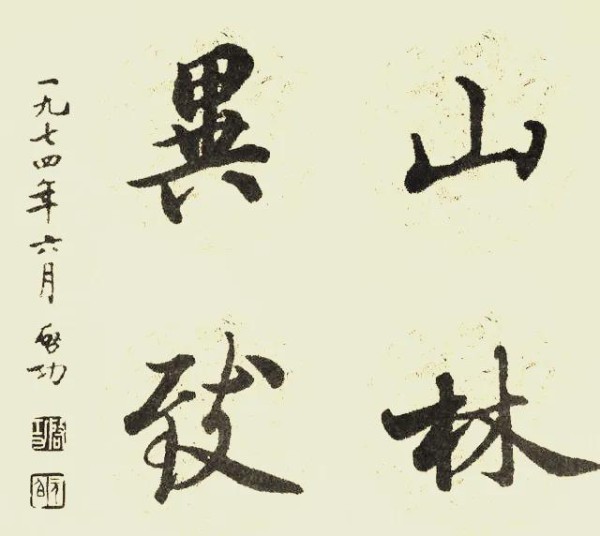 山林
異致
一九七四年六月 啓功